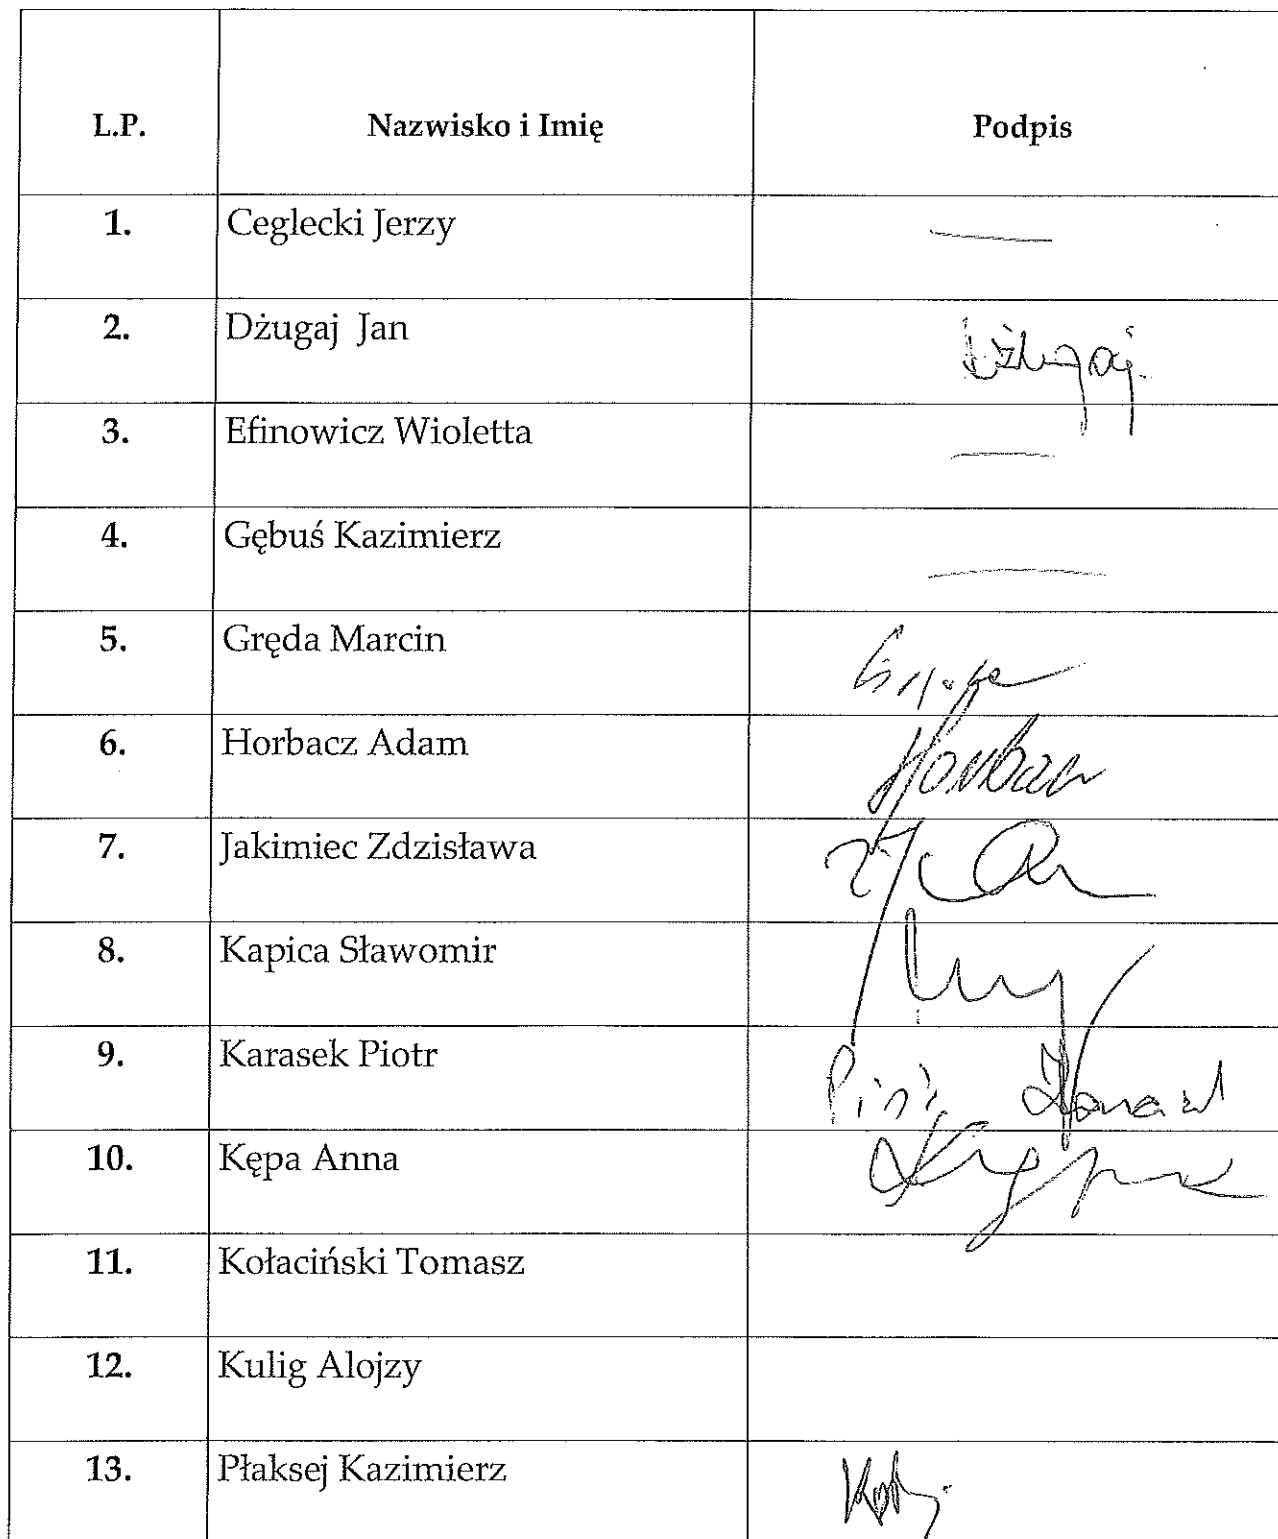 L.P. Nazwisko i Imię Podpis
1. Ceglecki Jerzy
2. Dżugaj Jan Dżugaj
3. Efinowicz Wioletta
4. Gębuś Kazimierz
5. Gręda Marcin
6. Horbacz Adam
7. Jakimiec Zdzisława
8. Kapica Sławomir
9. Karasek Piotr
10. Kępa Anna
11. Kołaciński Tomasz
12. Kulig Alojzy
13. Płaksej Kazimierz